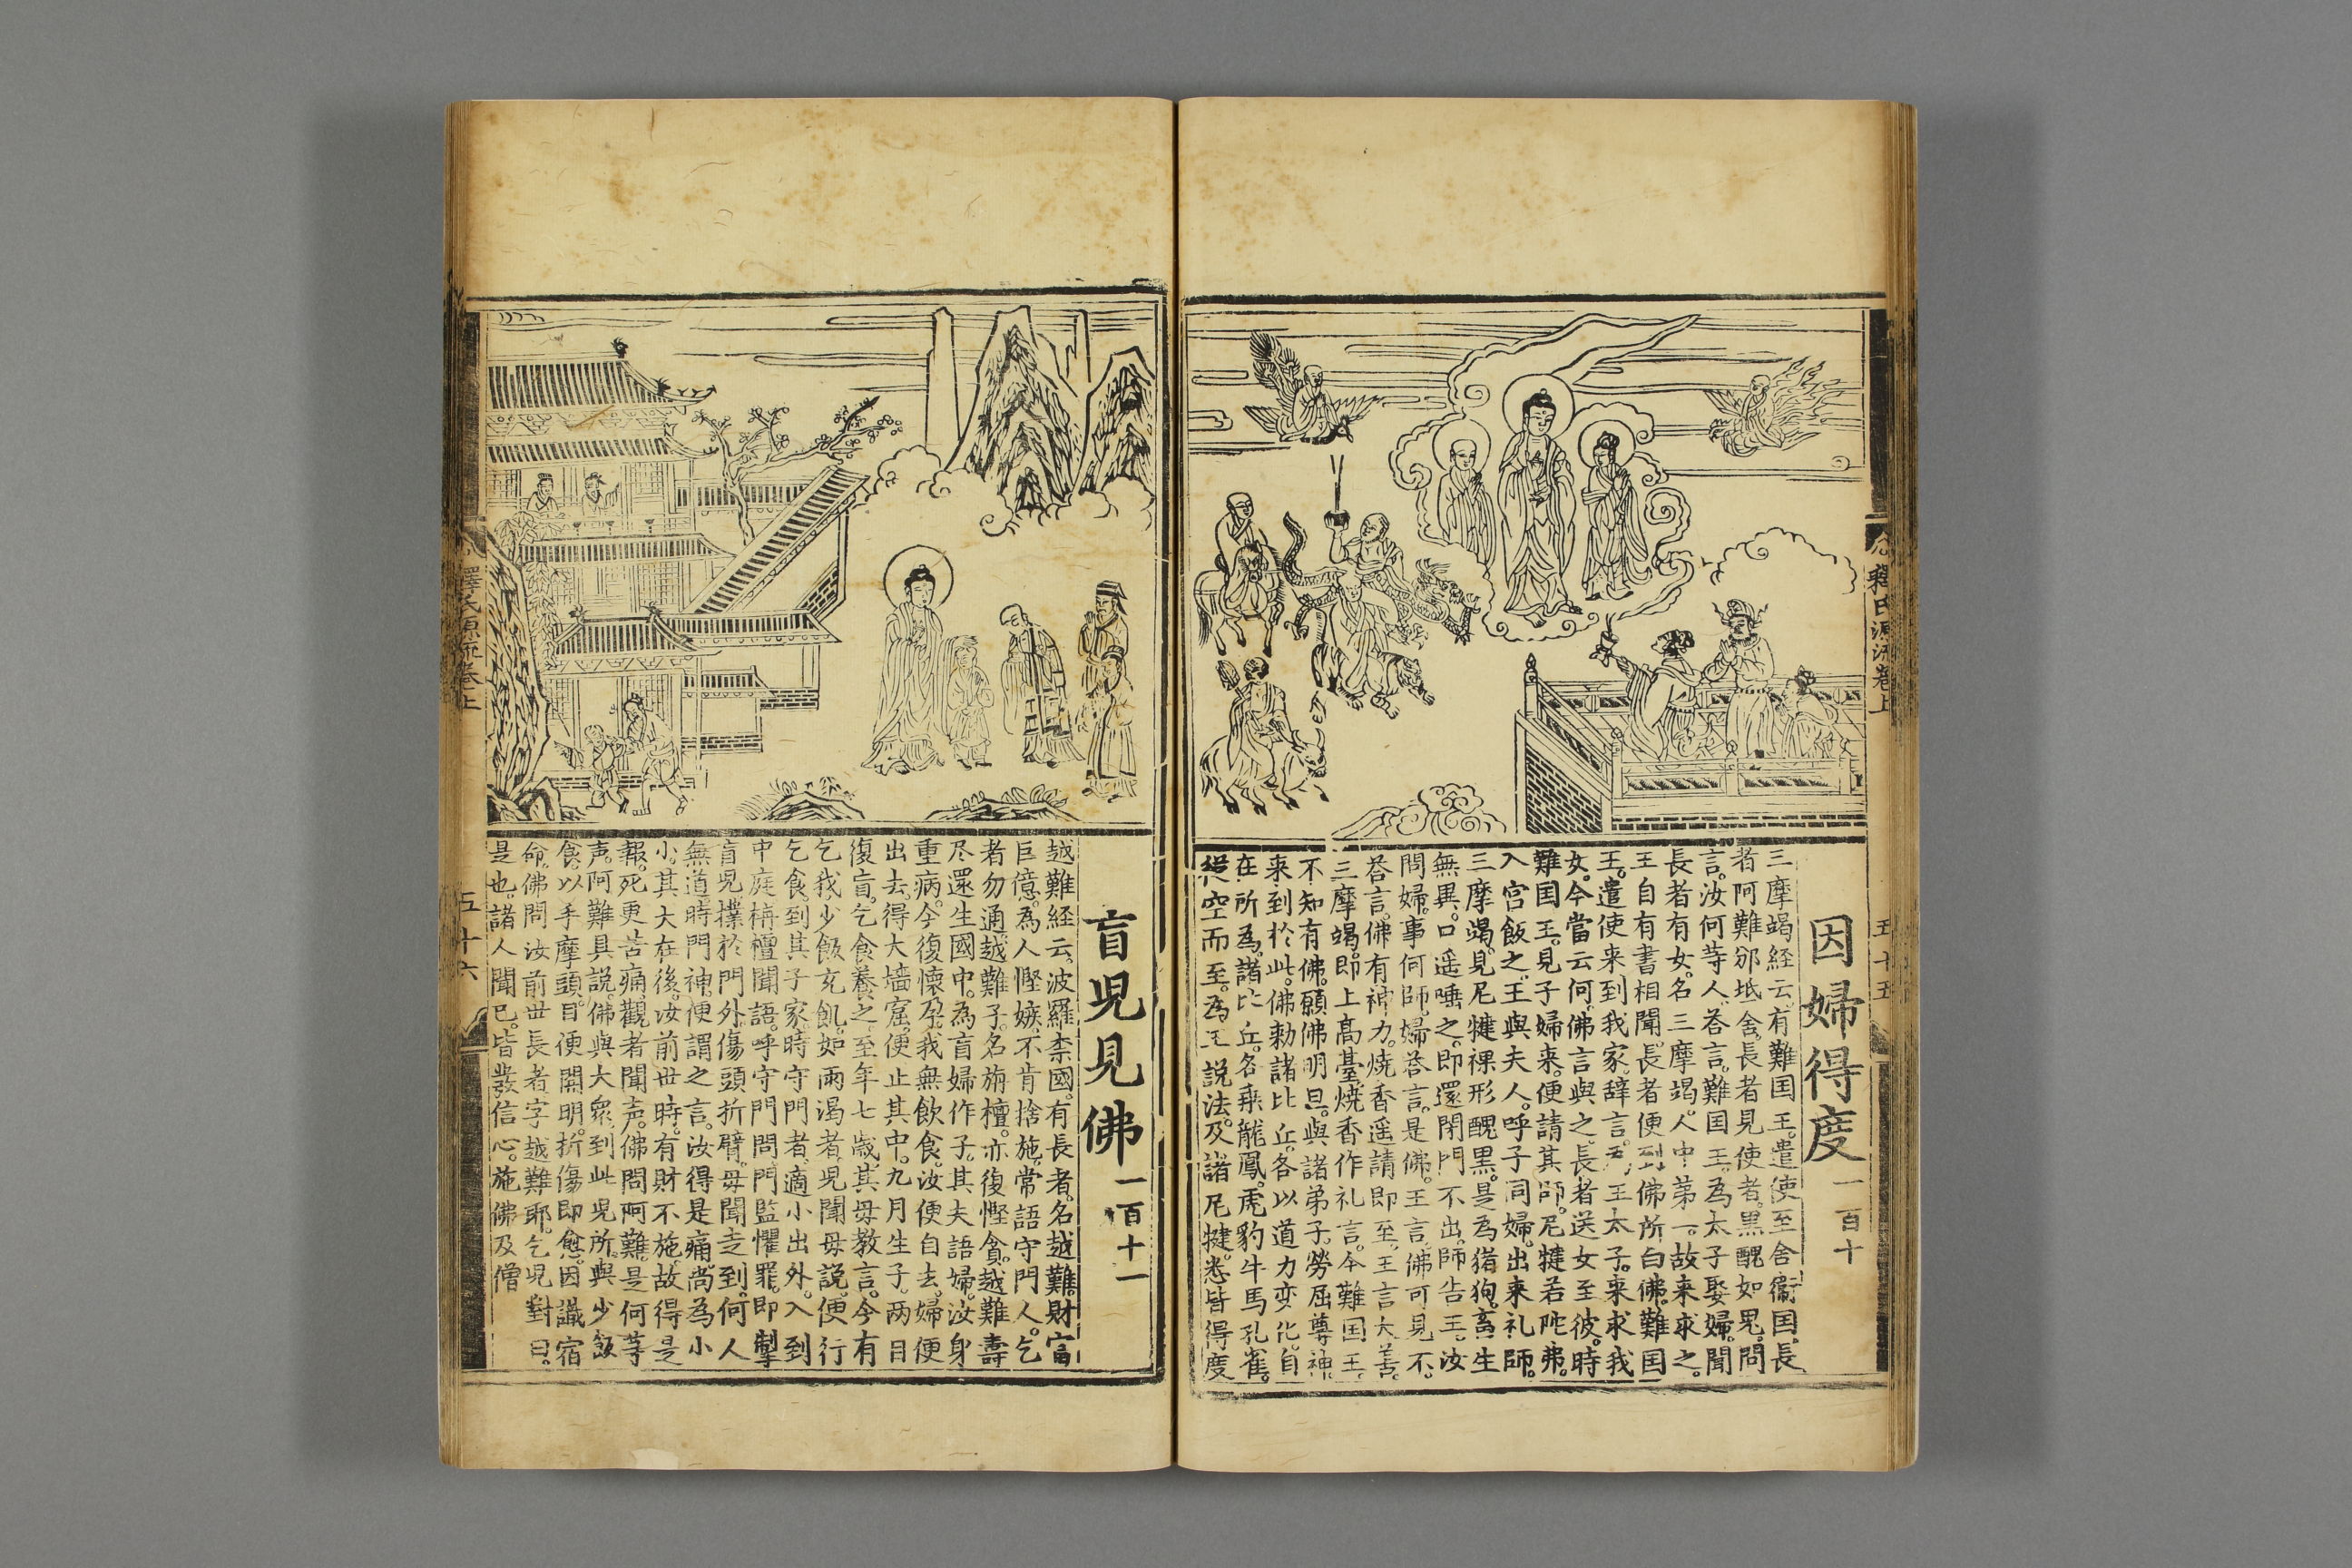 釋氏源流卷上
五十五
因婦得度一百十
三摩竭経云有難国王遣使至舍衞国長
者阿難邠坻舍長者見使者黒醜如鬼問
言汝何等人荅言難国王為太子娶婦聞
長者有女名三摩竭人中苐一故来求之
王自有書相聞長者便到佛所白佛難国
王遣使来到我家辞言王太子来求我
女今當云何佛言與之長者送女至彼時
難国王見子婦来便請其師尼犍若陀弗
入宮飯之王與夫人呼子同婦出来礼師
三摩竭見尼犍裸形醜黒是為猪狗畜生
無異口遥唾之即還閉門不出師告王汝
問婦事何師婦荅言是佛王言佛可見不
荅言佛有神力燒香遥請即至王言大善
三摩竭即上高臺燒香作礼言今難国王
不知有佛願佛明旦與諸弟子勞屈尊神
来到於此佛勅諸比丘各以道力变化自
在所為諸比丘各乗龍鳳虎豹牛馬孔雀
從空而至為王説法及諸尼犍悉皆得度
盲児見佛一百十一
越難経云波羅柰國有長者名越難財富
巨億為人慳嫉不肯捨施常語守門人乞
者勿通越難子名旃檀亦復慳貪越難壽
尽還生國中為盲婦作子其夫語婦汝身
重病今復懐孕我無飲食汝便自去婦便
出去得大墻窟便止其中九月生子两目
復盲乞食養之至年七歳其母教言今有
乞我少飯充飢如雨渇者児聞母説便行
乞食到其子家時守門者適小出外入到
中庭栴檀聞語呼守門問門監懼罪即掣
盲児撲於門外傷頭折臂母聞走到何人
無道時門神便謂之言汝得是痛尚為小
小其大在後汝前世時有財不施故得是
報死更苦痛觀者聞声佛問阿難是何等
声阿難具説佛與大衆到此児所與少飯
食以手摩頭目便開明折傷即愈因識宿
命佛問汝前世長者字越難耶乞児對曰
是也諸人聞已皆發信心施佛及僧
釋氏源流卷上
五十六